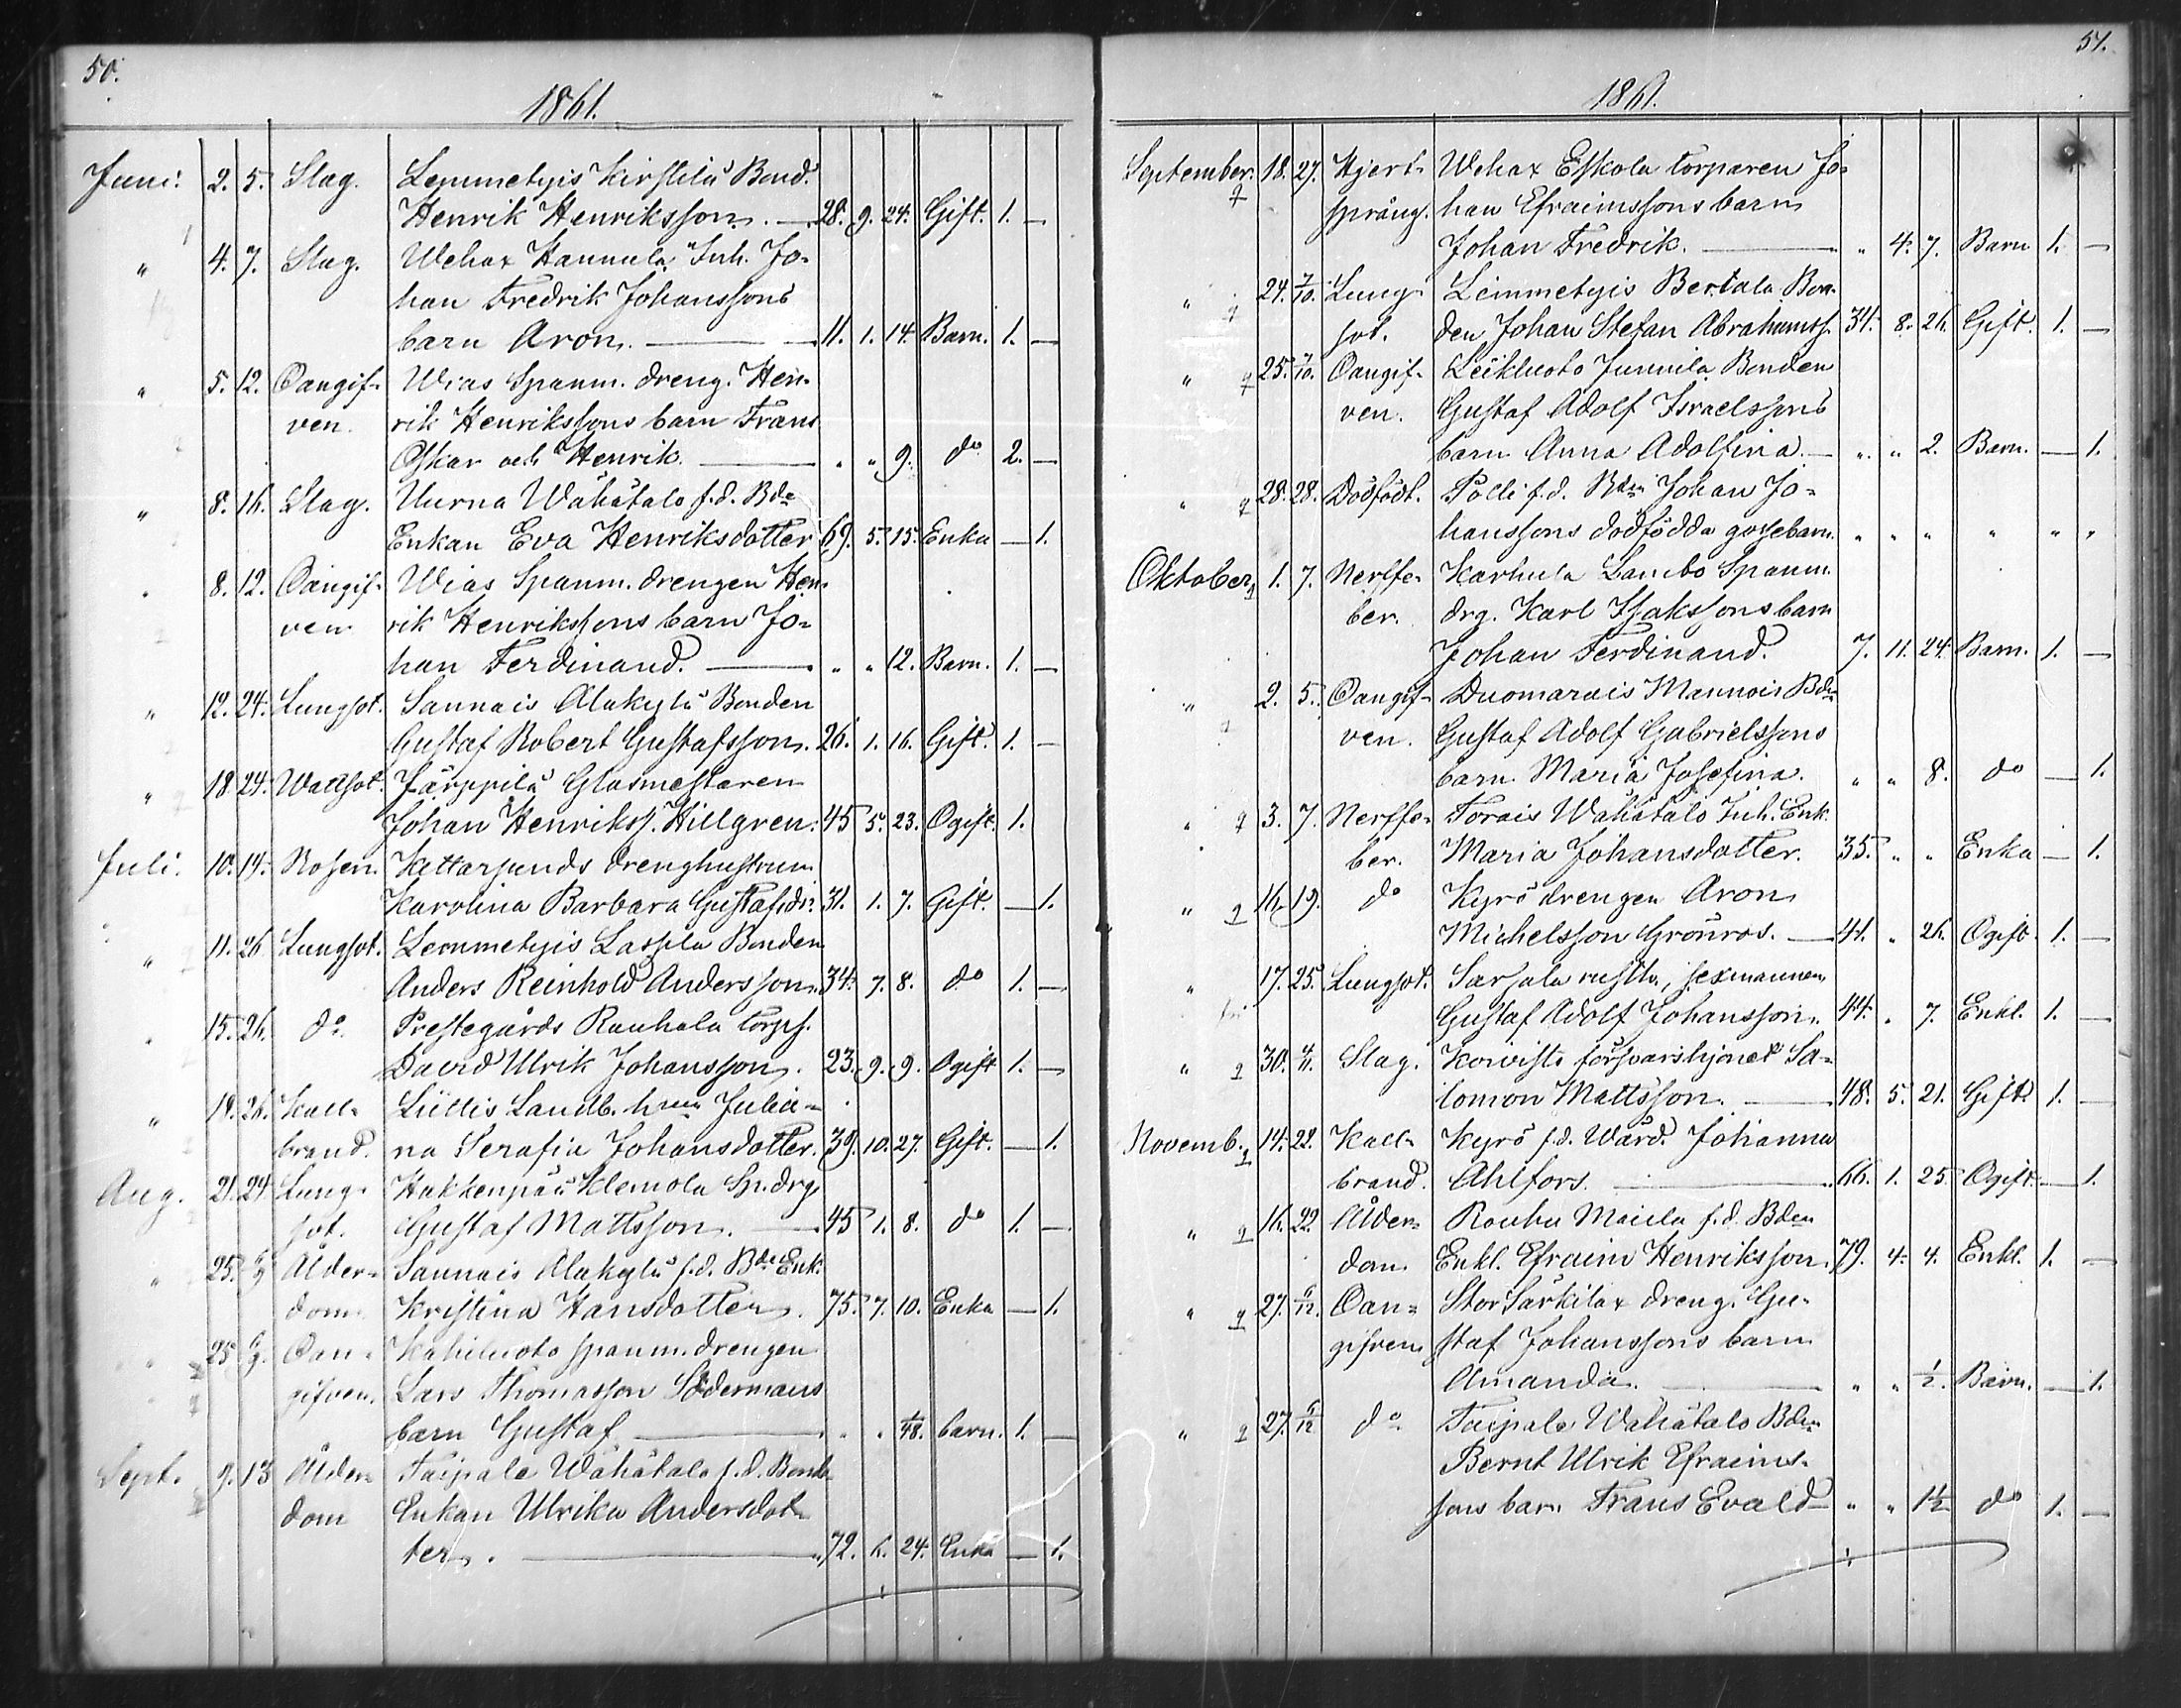 50.
1861.
Juni. 2. 5. Slag. Lemmetyis Kirstilä Bond.
Henrik Henriksson. — 28. 9. 24. Gift. 1. —
" 4. 7. Slag. Wehax Hannula Inh. Jo-
han Fredrik Johanssons
barn Aron. — 11. 1. 14. Barn. 1. —
" 5. 12. Oangif- Wias Spanm. dreng. Hen-
ven. rik Henrikssons barn Frans
Oskar och Henrik. — " " 9. do 2. —
" 8. 16. Slag. Uurna Wähätalo f.d. Bde
Enkan Eva Henriksdotter 69. 5. 15. Enka — 1.
" 8. 12. Oangif- Wias Spanm. drengen Hen-
ven rik Henrikssons barn Jo-
han Ferdinand. — " " 12. Barn. 1. —
" 12. 24. Lungsot. Sannais Alakylä Bonden
Gustaf Robert Gustafsson. 26. 1. 16. Gift. 1. —
" 18. 24. Wattsot. Järppilä Glasmestaren
Johan Henrikss. Hillgren. 45 5. 23. Ogift. 1.
Juli. 10. 14. Rosen. Kettarsunds drenghustrun
Karolina Barbara Gustafsdr. 31. 1. 7. Gift. — 1.
" 11. 26 Lungsot. Lemmetyis Lassila Bonden
Anders Reinhold Andersson. 34. 7. 8. do 1. —
" 15. 26. do. Prestegårds Rauhala torps.
David Ulrik Johansson. 23. 9. 9. Ogift 1. —
" 19. 26. Kall- Lüllis Landb. hrun Julia-
brand. na Serafia Johansdotter. 39. 10. 27. Gift. — 1.
Aug. 21. 24. Lung- Hakkenpää Klemola Sp. drg.
sot. Gustaf Mattsson. — 45 1. 8. do 1. —
" 25. Ålder- Sannais Alakylä f.d. Bde Enk.
dom. Kristina Hansdotter. 75. 7. 10. Enka — 1.
" 25 Oan- Kahiluoto spanm. drengen
gifven. Lars Thomasson Södermans
barn Gustaf — " " 1/48. barn. 1. —
Sept. 9. 13 Ålder- Taipale Wähätalo f.d. Bonde
dom Enkan Ulrika Andersdot-
ter. — 72. 6. 24. Enka — 1.
51.
1861.
September. 18. 27. Hjert- Wehax Eskola torparen Jo-
språng. han Efraimssons barn
Johan Fredrik. — " 4. 7. Barn 1. —
" 24. 7/10. Lung- Lemmetyis Bertala Bon-
sot. den Johan Stefan Abrahamss. 34. 8. 26. Gift. 1. —
" 25. 7/10. Oangif- Leikluoto Junnila Bonden
ven. Gustaf Adolf Israelssons
barn Anna Adolfina. — " " 2. Barn. — 1.
" 28. 28. Dödfödt. Polli f.d. Bden Johan Jo-
hanssons dödfödda gossebarn. " " " " " "
Oktober. 1. 7. Nerffe- Karhula Lambo Spanm.
ber. drg. Karl Isakssons barn
Johan Ferdinand. 7. 11. 24. Barn. 1. —
" 2. 5. Oangif- Duomarais Mannois Bden
ven. Gustaf Adolf Gabrielssons
barn Maria Josefina. " " 8. do — 1.
" 3. 7. Nerffe- Torais Wähätalo Inh. Enk.
ber. Maria Johansdotter. 35. " " Enka — 1.
" 16. 19. do Kyrö drengen Aron
Michelsson Grönros. — 41. " 26. Ogift. 1. —
" 17. 25. Lungsot. Sarsala rusth., sexmannen
Gustaf Adolf Johansson. 44. " 7. Enkl. 1. —
" 30. 4/11. Slag. Koivisto försvarshjonet Sa-
lomon Mattsson. — 48. 5. 21. Gift. 1. —
Novemb. 14. 22. Kall- Kyrö f.d. Wärd. Johanna
brand. Ahlfors. — 66. 1. 25. Ogift. — 1.
" 16. 22. Ålder- Rauhu Maula f.d. Bden
dom. Enkl. Efraim Henriksson. 79. 4. 4. Enkl. 1. —
" 27. 6/12. Oan- Stor Särkilax dreng. Gu-
gifven staf Johanssons barn
Amanda. — " " 1/2. Barn. — 1.
" 27. 6/12 do. Taipale Wähätalo Bden
Bernt Ulrik Efraims-
sons barn Frans Evald " " 1 1/2 do 1. —